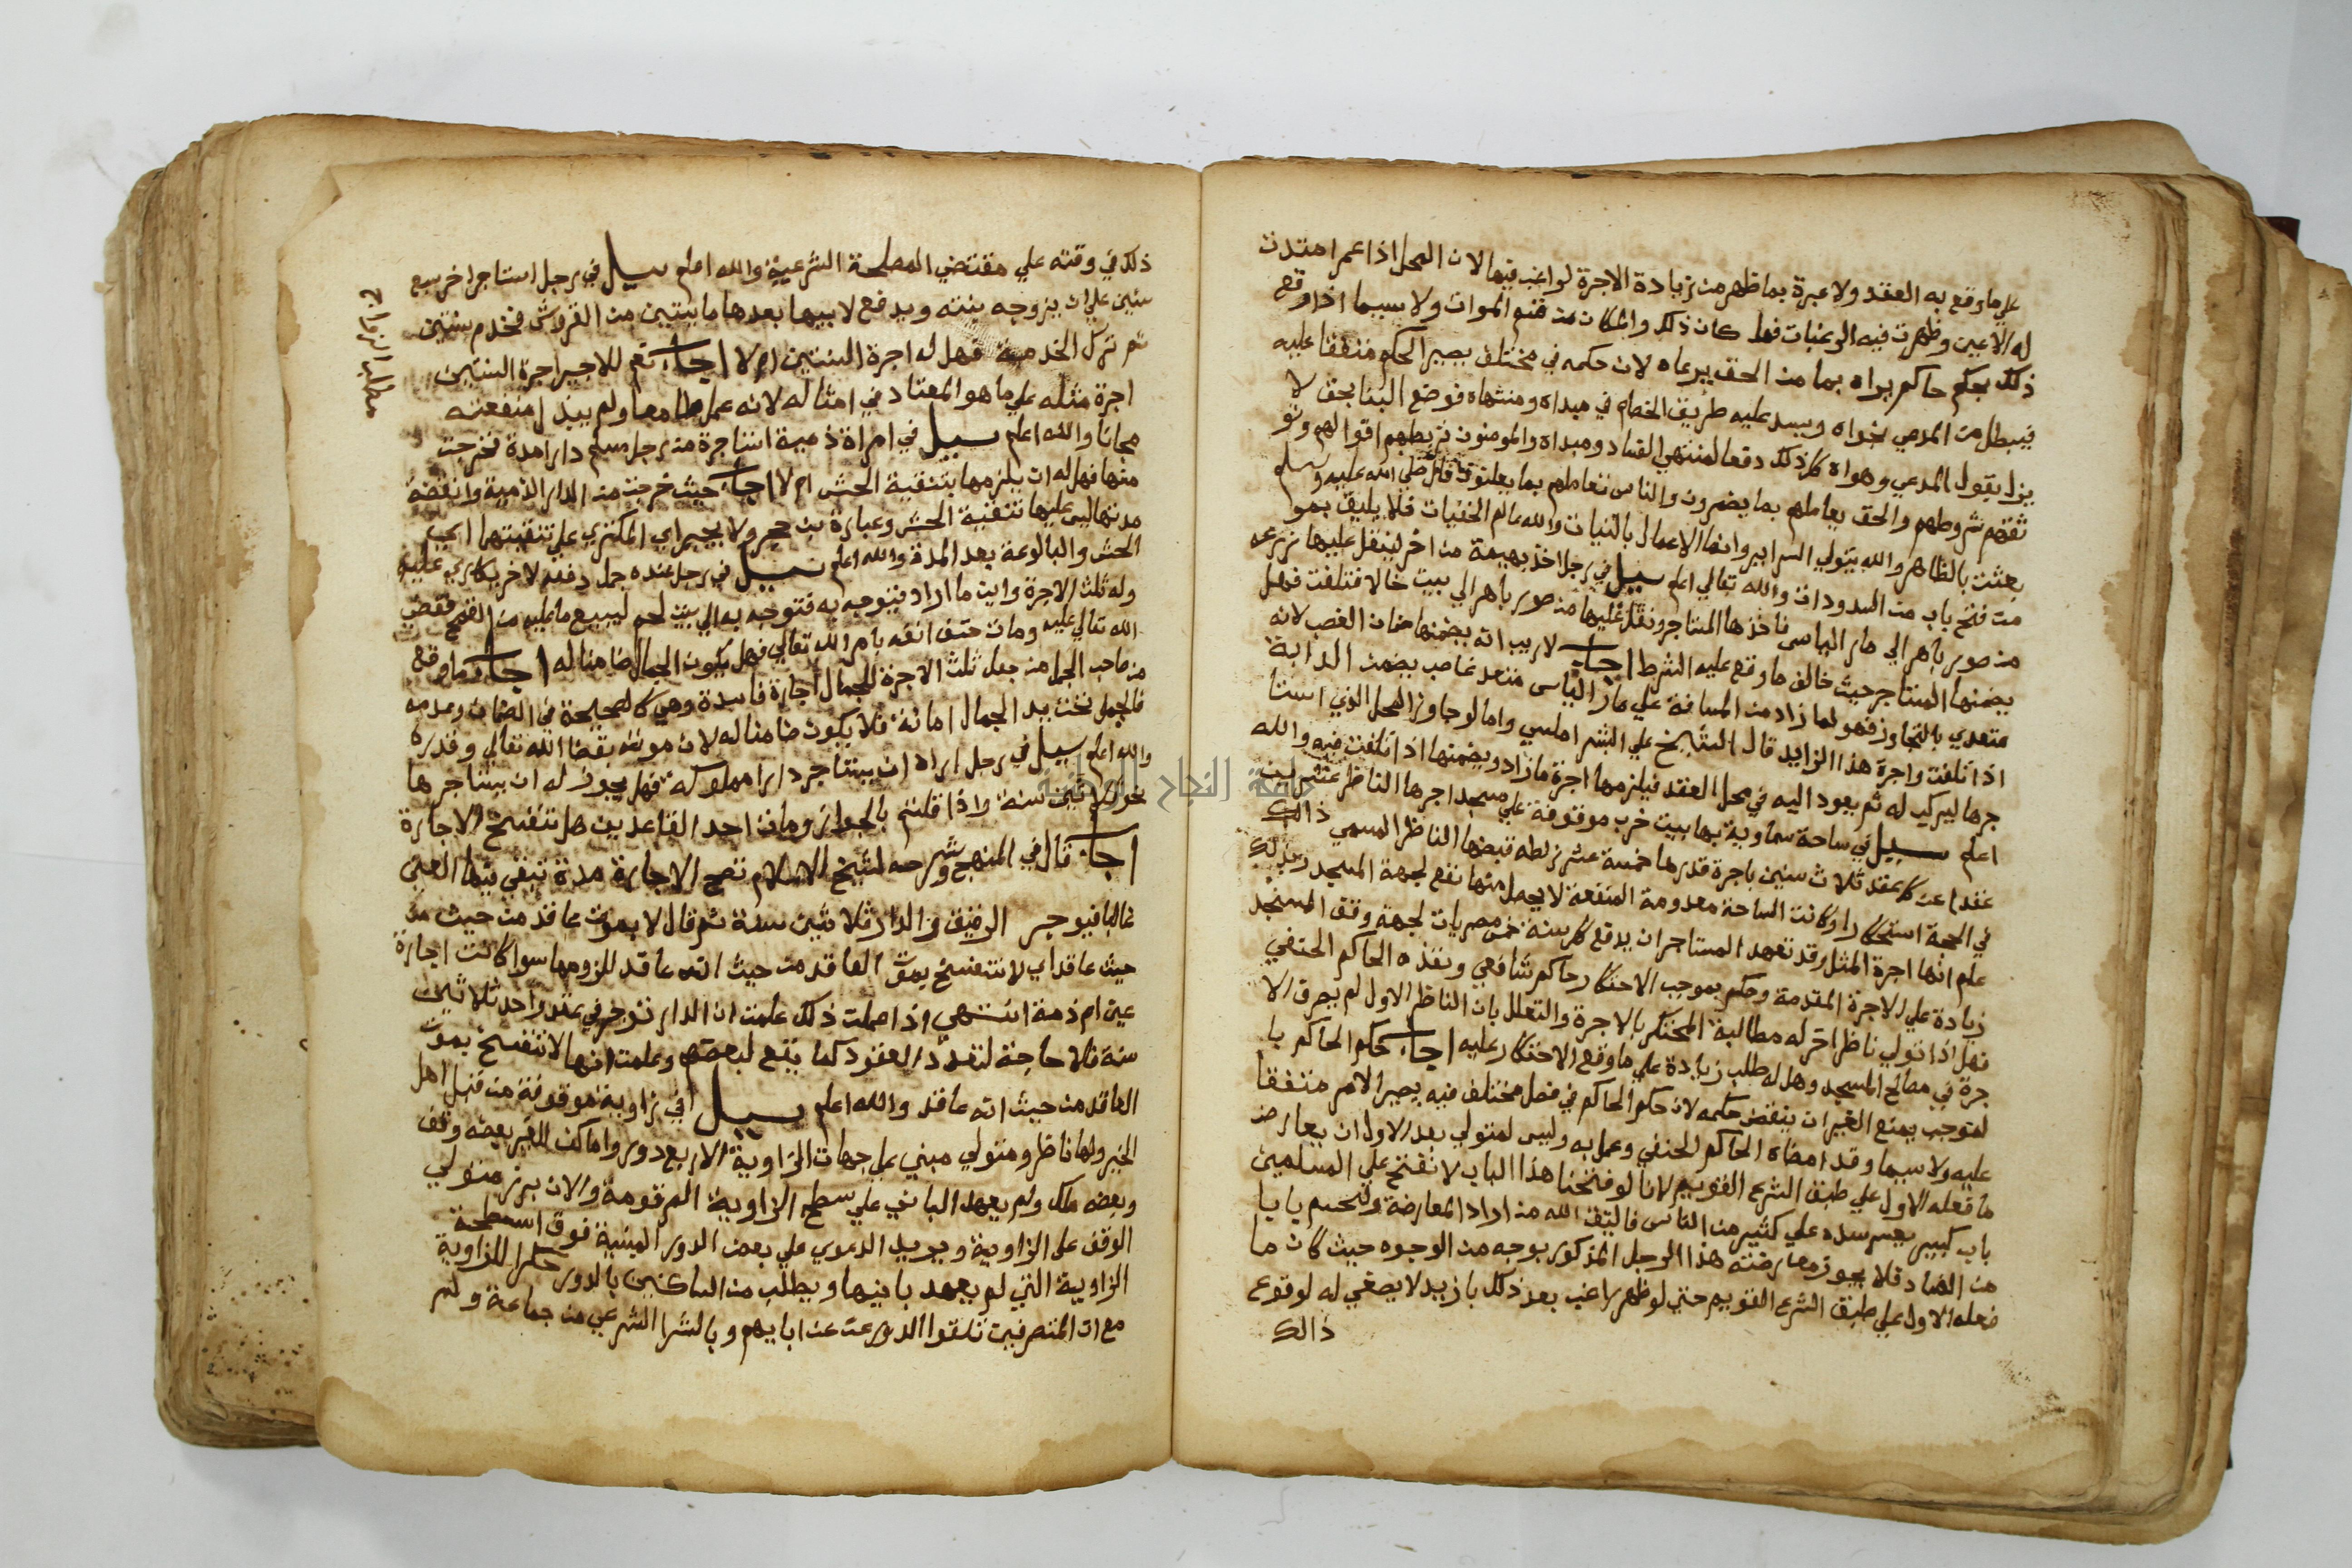 علي ما وقع به العقد ولا عبرة بما ظهر من زيادة الاجرة لو اغب فيها لان المحل اذا عمر امتدت
له الاعين وظهرت فيه الرغبات فما كان ذلك والمكان من قسم الموات ولا سيما اذا وقع
ذلك بحكم حاكم يراه بما من الحق يرعاه لان حكمه في مختلف يصير الحكم متفقا عليه
فيبطل من المدعي دعواه ويسد عليه طريق الخصام في مبداه ومنتهاه فوضع البنا بحق لا
يزل بقول المدعي وهواه كل ذلك دفعا لمنتهي الفساد ومبداه والمومنون تربطهم اقوالهم وتو
ثقهم شروطهم والحق يعاملهم بما يضمرون والناس تعاملهم بما يعلنون قال صلي الله عليه وسلم
بعثت بالظاهر والله يتولي السراير وانما الاعمال بالنيات والله عالم الخفيات فلا يليق بمو
من فتح باب من السدودات والله تعالي اعلم سيل في رجل اخذ بهيمة من اخر لينقل عليها من زرعه
من صور باهر الي مار الياس فاخذها المستاجر ونقل عليها من صور باهر الي بيت خالا فتلفت فهل
يضمنها المستاجر حيث خالف ما وقع عليه الشرط اجاب لا ريب انه يضمنها ضمان الغصب لانه
متعدي بالتجاوز فهو لما زاد من المسافة علي مار الياس متعد غاصب يضمن الدابة
اذا تلفت واجرة هذا الزايد قال الشيخ علي الشبراملسي واما لو جاوز المحل الذي استا
جرها ليركب له ثم يعود اليه في محل العقد فيلزمها اجرة ما زاد ويضمنها اذا تلفت فيه والله
اعلم سيل في ساحة سماوية بها بيت خرب موقوفة علي مسجد اجرها الناظر عشرين
عقدا عن كل عقد ثلاث سنين باجرة قدرها خمسة عشر زلطه قبضها الناظر المسمي ذالك
في الحجة استحكارا وكانت الساحة معدومة المنفعة لا يحصل منها نفع لجهة المسجد وبذلك
علم انها اجرة المثل وقد تعهد المستاجر ان يدفع كل سنة خمس مصريات لجهة وقف المسجد
زيادة علي الاجرة المقدمة وحكم بموجب الاحتكار حاكم شافعي ونفذه الحاكم الحنفي
فهل اذا تولي ناظر اخر له مطالبة المحتكر بالاجرة والتعلل بان الناظر الاول لم يصرف الا
جرة في مصالح المسجد وهل له طلب زيادة علي ما وقع الاحتكار عليه اجاب حكم الحاكم با
لموجب يمنع الغير ان ينقض حكمه لان حكم الحاكم في فصل مختلف فيه يصير الامر متفقا
عليه ولا سيما وقد امضاه الحاكم الحنفي وعمل به وليس لمتولي بعد الاول ان يعارض
ما فعله الاول علي طبق الشرع القويم لانا لو فتحنا هذا الباب لانفتح علي المسلمين
باب كبير يعسر سده علي كثير من الناس فاليتق الله من اراد المعارضة وليحسم بابا
من الفساد فلا يجوز معارضته هذا الرجل المذكور بوجه من الوجوه حيث كان ما
فعله الاول علي طبق الشرع القويم حتي لو ظهر راغب بعد ذلك بازيد لا يصغي له لوقوع
ذالك
ذلك في وقته علي مقتضي المصلحة الشرعية والله اعلم سيل في رجل استاجر اخر سبع
سنين علي ان يزوجه بنته ويدفع لابيها بعدها مايتين من القروش فخدم سنتين
ثم ترك الخدمة فهل له اجرة السنتين ام لا اجاب نعم للاجير اجرة السنتين
اجرة مثله علي ما هو المعتاد في امثاله لانه عمل طامعا ولم يبذل منفعته
مجانا والله اعلم سيل في امراة ذمية استاجرة من رجل مسلم دارا مدة فخرجت
منها فهل له ان يلزمها بتنقية الحش ام لا اجاب حيث خرجت من الدار الذمية وانقضة
مدتها ليس عليها تنقية الحش وعبارة بن حجر ولا يجبر اي المكتري علي تنقيتهما اي
الحش والبالوعة بعد المدة والله اعلم سيل في رجل عنده جمل دفعه لاخر يكاري عليه
وله ثلث الاجرة واين ما اراد فيتوجه به فتوجه به الي بيت لحم ليبيع ما عليه من القمح فقضي
الله تعالي عليه ومات حتف انفه بامر الله تعالي فهل يكون الجمال ضامنا له اجاب ما وقع
من صاحب الجمل من جعل ثلث الاجرة للجمال اجارة فاسدة وهي كالصحيحة في الضمان وعدمه
فالجمل تحت يد الجمال امانة فلا يكون ضامنا له لان موته بقضا الله تعالي وقدره
والله اعلم سيل في رجل اراد ان يستاجر دارا مملوكة فهل يجوز له ان يستاجرها
نحو ثلاثين سنة واذا قلتم بالجواز ومات احد العاقدين هل تنفسخ الاجارة
اجاب قال في المنهج وشرحه لشيخ الاسلام تصح الاجارة مدة تبقي فيها العين
غالبا فيوجر الرقيق والدار ثلاثين سنة ثم قال لا بموت عاقد من حيث
حيث عاقد اي لا تنفسخ بموت العاقد من حيث انه عاقد للزومها سوا كانت اجارة
عين ام ذمة انتهي اذا علمت ذلك علمت ان الدار توجر في عقد واحد ثلاثين
سنة فلا حاجة لتعدد العقود كما يقع لبعضهم وعلمت انها لا تنفسخ بموت
العاقد من حيث انه عاقد والله اعلم سيل في زاوية موقوفة من قبل اهل
الخير ولها ناظر ومتولي مبني علي جهات الزاوية الاربع دور واماكن للغير بعضه وقف
وبعضه ملك ولم يعهد الباني علي سطح الزاوية المرقومة والان برز متولي
الوقف علي الزاوية ويريد الدعوي علي بعض الدور المبنية فوق اسطحة
الزاوية التي لم يعهد بانيها ويطلب من الساكنين بالدور حكرا للزاوية
مع ان المتصرفين تلقوا الدور عن عن ابايهم وبالشرا الشرعي من جماعة ولم
مطلب الزواج
جامعة النجاح الوطنية